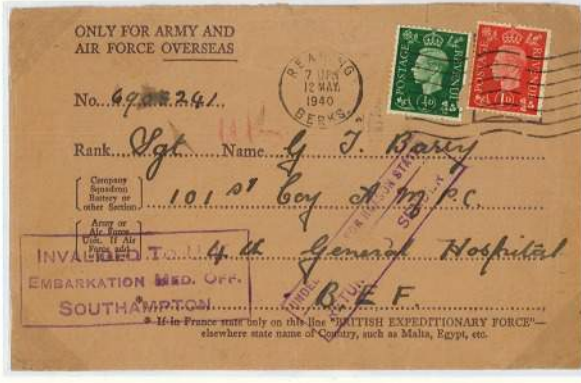 ONLY FOR ARMY AND
AIR FORCE OVERSEAS
POSTAGE REVENUE
½D
POSTAGE REVENUE
1D
READING
12 MAY
1940
BERKS.
No.
Rank Sgt Name G J. Barey
Company
Squadron
Battery or
other Section
101 st Coy A.M.P.C.
Army or
Air Force
Unit. If Air
Force add
4 th General Hospital
B.E.F.
INVALIDED TO
EMBARKATION MED. OFF.
SOUTHAMPTON
FOR REASON STATED
RETURN SENDER
* If in France state only on this line "BRITISH EXPEDITIONARY FORCE"—
elsewhere state name of Country, such as Malta, Egypt, etc.